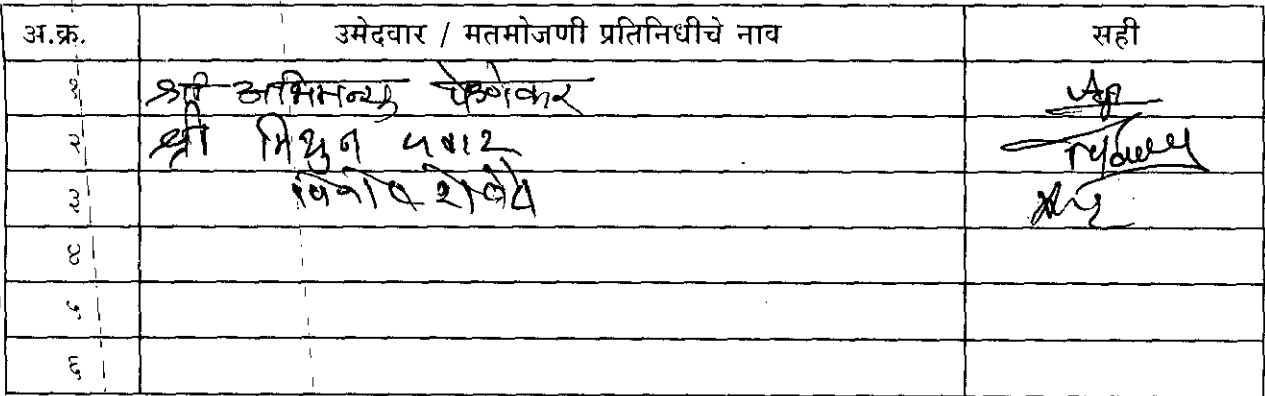 अ.क्र. उमेदवार / मतमोजणी प्रतिनिधीचे नाव सही
१ श्री अभिमन्यु
२ श्री मिथुन पवार
३ विनोद
४
५
६